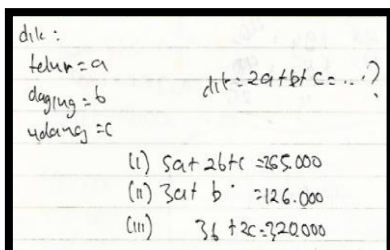 dik :
telur = a
daging = b
udang = c
dit = 2a + b + c = ... ?
(i) 5a + 2b + c = 265.000
(ii) 3a + b = 126.000
(iii) 3b + 2c = 320.000